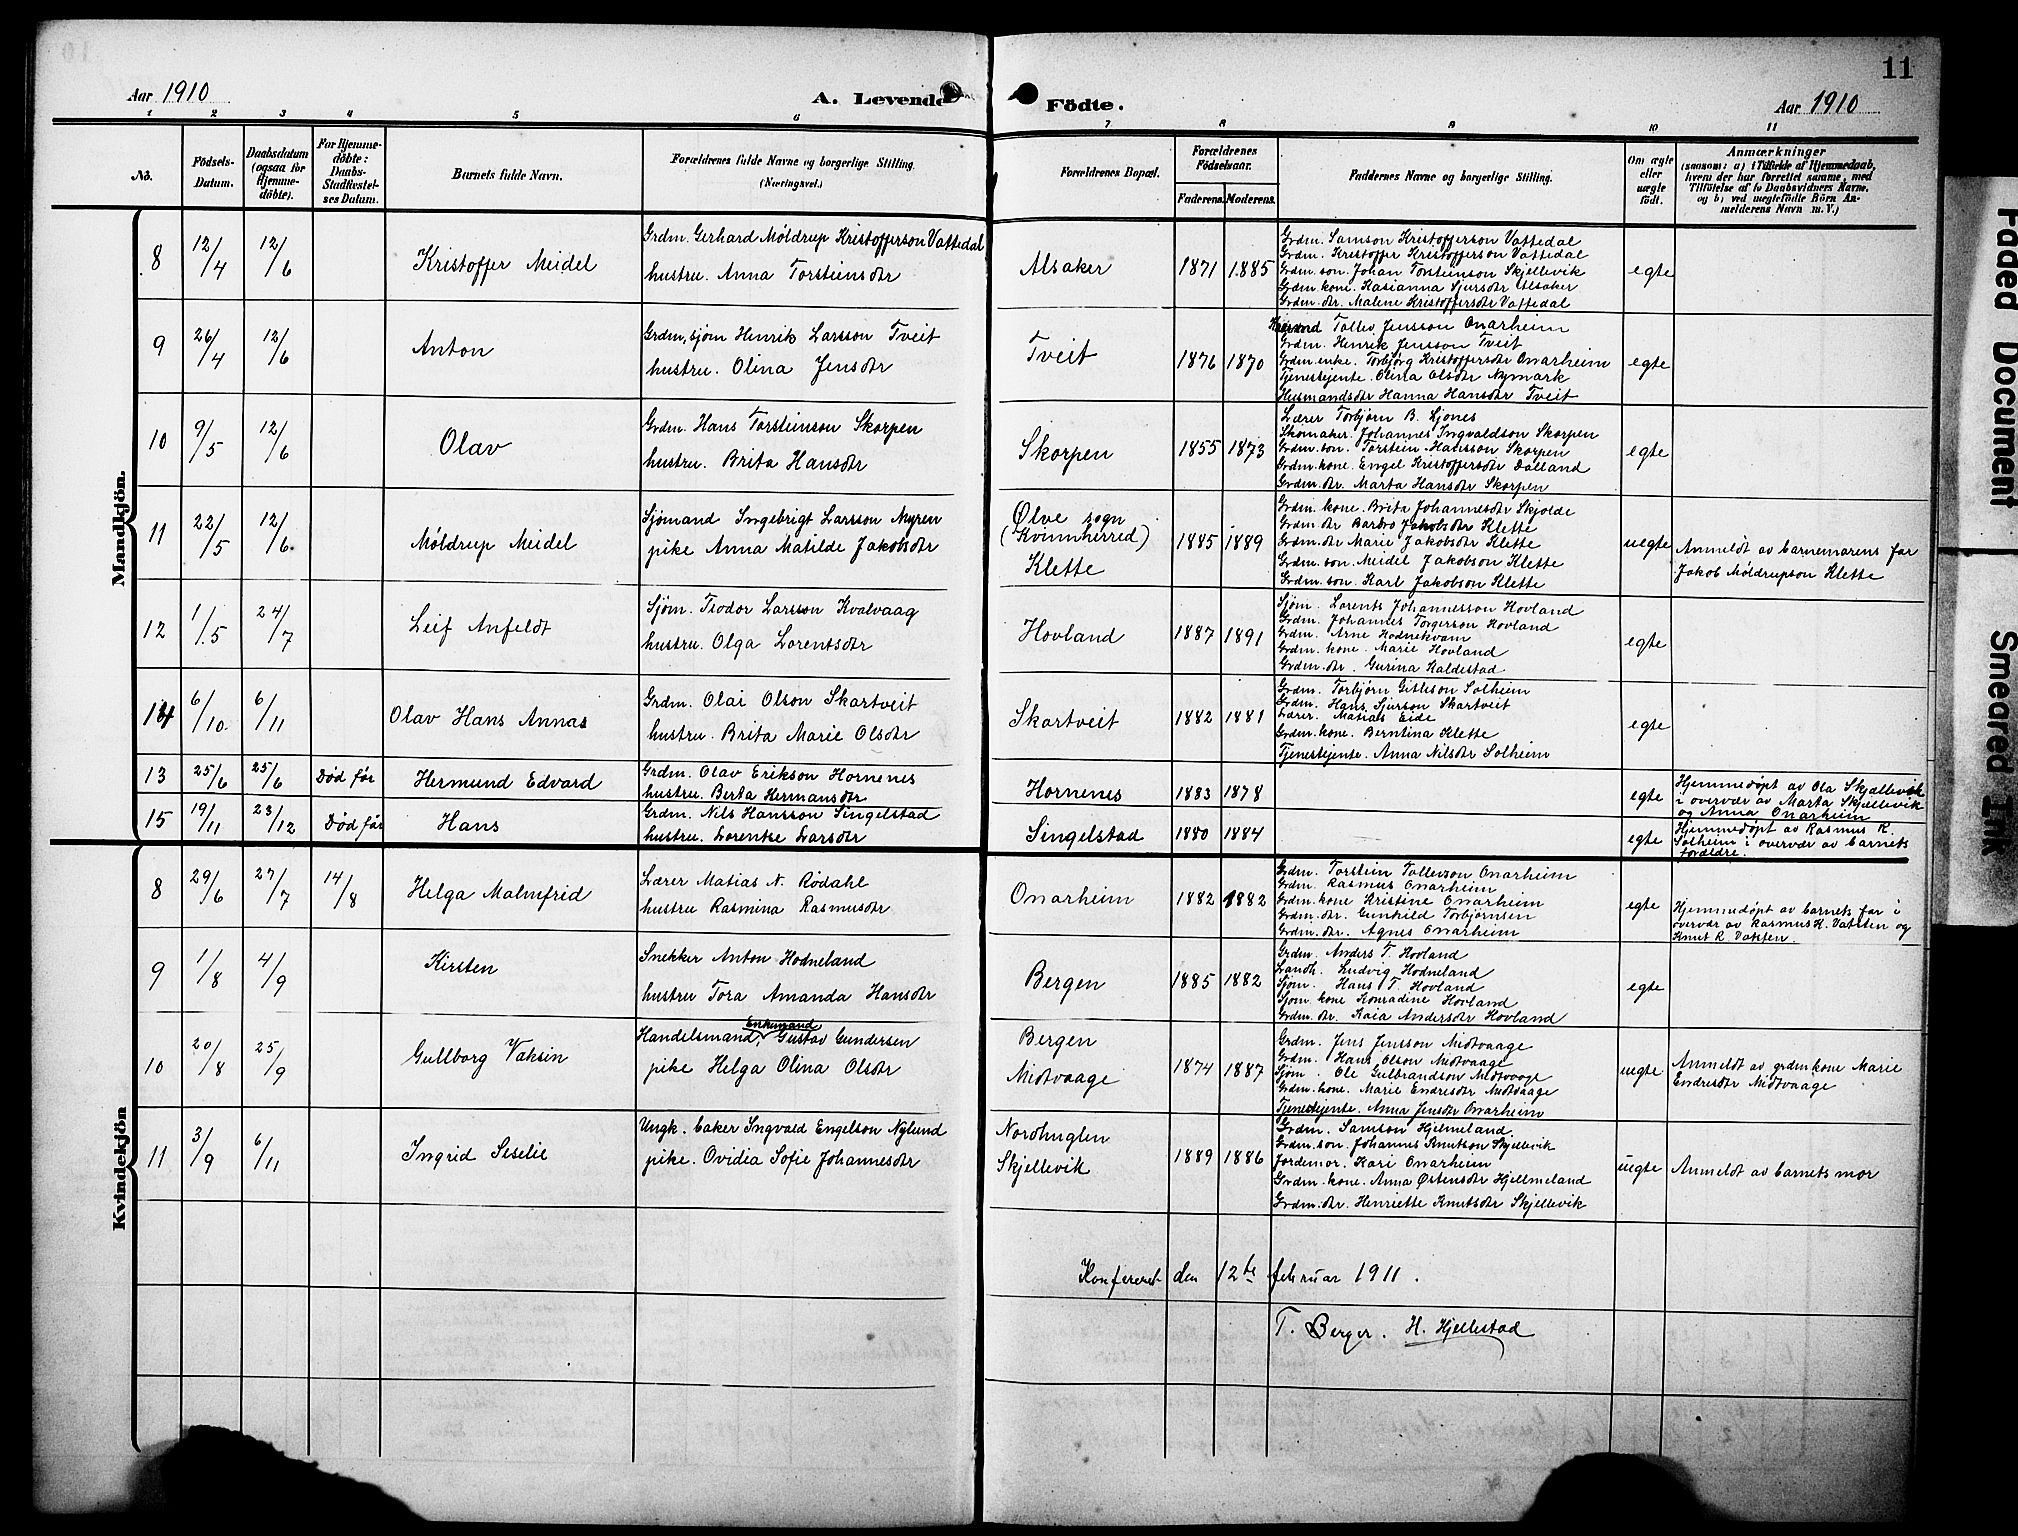 11
Aar 1910
A. Levende Födte.
Aar 1910
1 2 3 4 5 6 7 8 9 10 11
No.
Födsels-Datum.
Daabsdatum (ogsaa for Hjemmedöbte).
For Hjemmedöbte: Daabs-Stadfæstelses Datum.
Barnets fulde Navn.
Forældrenes fulde Navne og borgerlige Stilling. (Næringsvei.)
Forældrenes Bopæl.
Forældrenes Födselsaar.
Faderens. Moderens.
Faddernes Navne og borgerlige Stilling.
Om ægte eller uægte født.
Anmærkninger
(saasom: a) i Tilfælde af Hjemmedaab, hvem der har forrettet samme, med Tilföielse af to Daabsvidners Navne, og b) ved uægtefödte Börn Anmelderens Navn m. V.)
Mandkjön.
8 12/4 12/6 Kristoffer Meidel
Grdm. Gerhard Møldrup Kristofferson Vattedal
hustru. Anna Torsteinsdtr
Alsaker 1871 1885
Grdm. Samson Kristofferson Vattedal
Grdm. Kristoffer Kristofferson Vattedal
Grdm. son. Johan Torsteinson Skjellevik
Grdm. kone. Kasianna Sjursdtr Alsaker
Grdm. dtr. Malene Kristoffersdtr Vattedal
egte
9 26/4 12/6 Anton
Grdm, sjøm Henrik Larsson Tveit
hustru. Olina Jensdtr
Tveit 1876 1870
Tollev Jensson Onarheim
Grdm. Henrik Jensson Tveit
Grdm. enke. Torbjørg Kristoffersdtr Onarheim
Tjenestjente. Olina Olsdtr Nymark
Husmandsdtr Hanna Hansdtr Tveit
egte
10 9/5 12/6 Olav
Grdm. Hans Torsteinson Skorpen
hustru. Brita Hansdtr
Skorpen 1855 1873
Lærer Torbjørn B. Ljones
Skomaker. Johannes Ingvaldson Skorpen
Grdm. son. Torstein Hansson Skorpen
Grdm. kone. Engel Kristoffersdtr Dalland
Grdm. dtr. Marta Hansdtr Skorpen
egte
11 22/5 12/6 Møldrup Meidel
Sjømand Ingebrigt Larsson Myren
pike Anna Matilde Jakobsdtr
Ølve sogn
(Kvinnherred)
Klette
1885 1889
Grdm. kone. Brita Johannesdtr Skjolde
Grdm. dtr Barbro Jakobsdtr Klette
Grdm. dtr Marie Jakobsdtr Klette
Grdm. son. Meidel Jakobson Klette
Grdm. son. Karl Jakobson Klette
uegte
Anmeldt av barnemorens far
Jakob Møldrupson Klette
12 1/5 24/7 Leif Anfeldt
Sjøm. Teodor Larsson Kvalvaag
hustru. Olga Lorentsdtr
Hovland 1887 1891
Sjøm. Lorents Johannesson Hovland
Grdm. Johannes Torgerson Hovland
Grdm. Arne Hodnekvam
Grdm. kone. Marie Hovland
Grdm. dtr. Gurina Kaldestad
egte
14 6/10 6/11 Olav Hans Annas
Grdm. Olai Olson Skartveit
hustru. Brita Marie Olsdtr
Skartveit 1882 1881
Grdm. Torbjørn Gitleson Solheim
Grdm. Hans Sjurson Skartveit
Lærer. Matias Eide
Grdm. kone. Berntina Klette
Tjenestjente. Anna Nilsdtr Solheim
egte
13 25/6 25/6 Død før Hermund Edvard
Grdm. Olav Erikson Hornenes
hustru. Berta Hermansdtr
Hornenes 1883 1878 egte
Hjemmedøpt av Ola Skjellevik
i overvær av Marta Skjellevik
og Anna Onarheim
15 19/11 23/12 Død før Hans
Grdm. Nils Hansson Singelstad
hustru. Lorentse Larsdtr
Singelstad 1880 1884 egte
Hjemmedøpt av Rasmus R.
Solheim i overvær av barnets
forældre.
Kvindekjön
8 29/6 27/7 14/8 Helga Malmfrid
Lærer Matias N. Rødahl
hustru Rasmina Rasmusdtr
Onarheim 1882 1882
Grdm. Torstein Tollevson Onarheim
Grdm. Rasmus Onarheim
Grdm. kone Kristine Onarheim
Grdm. dtr. Gunhild Torbjørnsen
Grdm. dtr. Agnes Onarheim
egte
Hjemmedøpt av barnets far i
overvær av Rasmus K. Vatsten og
Knut R. Vatsten.
9 1/8 4/9 Kirsten
Snekker Anton Hodneland
hustru Tora Amanda Hansdtr
Bergen 1885 1882
Grdm. Anders T. Hovland
Landh. Ludvig Hodneland
Sjøm. Hans T. Hovland
Sjøm. kone Konradine Hovland
Grdm. dtr. Kaia Andersdtr Hovland
egte
10 20/8 25/9 Gullborg Vaksin
Enkemand
Handelsmand, Gustav Gundersen
pike Helga Olina Olsdtr
Bergen
Midtvaage
1874 1887
Grdm. Jens Jensson Midtvaage
Grdm. Hans Olson Midtvaage
Sjøm. Ole Gulbrandson Midtvaage
Grdm. kone. Marie Endresdtr Midtvaage
Tjenestjente. Anna Jensdtr Onarheim
uegte
Anmeldt av grdmkone Marie
Endresdtr Midtvaage
11 3/9 6/11 Ingrid Seselie
Ungk. baker Ingvald Engelson Nylund
pike. Ovidia Sofie Johannesdtr
Nordhuglen
Skjellevik
1889 1886
Grdm. Samson Hjelmeland
Grdm. son. Johannes Knutson Skjellevik
Jordemor. Kari Onarheim
Grdm. kone. Anna Østensdtr Hjelmeland
Grdm. dtr. Henriette Knutsdtr Skjellevik
uegte
Anmeldt av barnets mor
Konfereret den 12te februar 1911.
T. Berger. H. Hjellestad
Faded Document
Smeared Ink